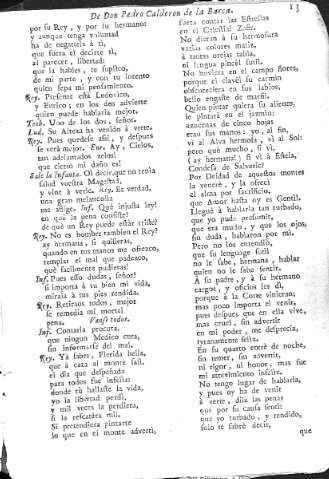 De Don Pedro Calderon de la Barca.
13
por su Rey, y por su hermano
y aunque tenga voluntad
ha de negarsela à ti,
que fuera el decirte si,
al parecer, libertad:
que la hables, te suplico,
de mi parte, y con tu intento
quien sepa mi pensamiento.
Rey. Presente está Ludovico,
y Enrico; en los dos advierte
quien puede hablarla mejor.
Teob. Uno de los dos, señor.
Lud. Su Alteza ha venido à verte.
Rey. Pues quedese assi, y despues
se verà mejor. Enr. Ay, Cielos,
tan adelantados zelos!
que cierto mi daño es!
Sale la Infanta. Oì decir, que no tenia
salud vuestra Magestad,
y vine à verle. Rey. Es verdad,
una gran melancolia
me aflige. Inf. Què injusta ley!
en què la pena consiste?
de què un Rey puede estàr triste?
Rey. No es hombre tambien el Rey?
ay hermana, si quisieras,
quando en tus manos me ofrezco,
templar el mal que padezco,
què facilmente pudieras!
Inf. Pues esso dudas, señor?
si importa à tu bien mi vida,
mirala à tus pies rendida.
Rey. Retiraos todos, mejor
se remedia mi mortal
pena. Vanse todos.
Inf. Contarla procura,
que ningun Medico cura,
sin informarse del mal.
Rey. Yà sabes, Flerida bella,
que à caza al monte salì,
el dia que despeñada
para todos fue infelìz
donde tù hallaste la vida,
yo la libertad perdì,
y mil veces la perdiera,
si la rescatàra mil.
Si pretendiera pintarte
lo que en el monte advertì,
fuera contar las Estrellas
en el Celestial Zafir.
No dieran à su hermosura
varias colores matiz,
à tantas orejas tabla,
ni lengua pincèl sutil.
No huviera en el campo flores,
porque el clavèl su carmin
obscureciera en sus labios,
bello engaste de marfil.
Quien pintar quisiera su aliento,
le pintàra en el jazmin:
azucenas de cinco hojas
eran sus manos: yo, al fin,
vì al Alva hermosa, vì al Sol:
pero què mucho, si vì,
(ay hermana!) si vì à Estela,
Condesa de Salveric?
Por Deidad de aquestos montes
la venerè, y la ofrecì
el alma por sacrificio,
que Amor hasta oy es Gentil.
Lleguè à hablarla tan turbado,
que yo pude presumir,
que era mudo, y que los ojos,
sin duda, hablaron por mi.
Pero no los entendiò,
que su lenguage sutil
no le sabe, hermana, hablar
quien no le sabe sentir.
A su padre, y à su hermano
cargos, y oficios les dì,
porque à la Corte viniera;
mas poco importa el venir,
pues despues que en ella vive,
mas cruel, sin advertir
en mi poder, me desprecia,
tyranamente
En su quarto entrè de noche,
sin temer, sin advertir,
ni rigor, ni honor, mas fue
mi atrevimiento infelìz.
No tengo lugar de hablarla,
y pues oy ha de venir
à verte, dila las penas
que por su causa sentì:
que yo turbado, y rendido,
solo te sabrè decir,
que